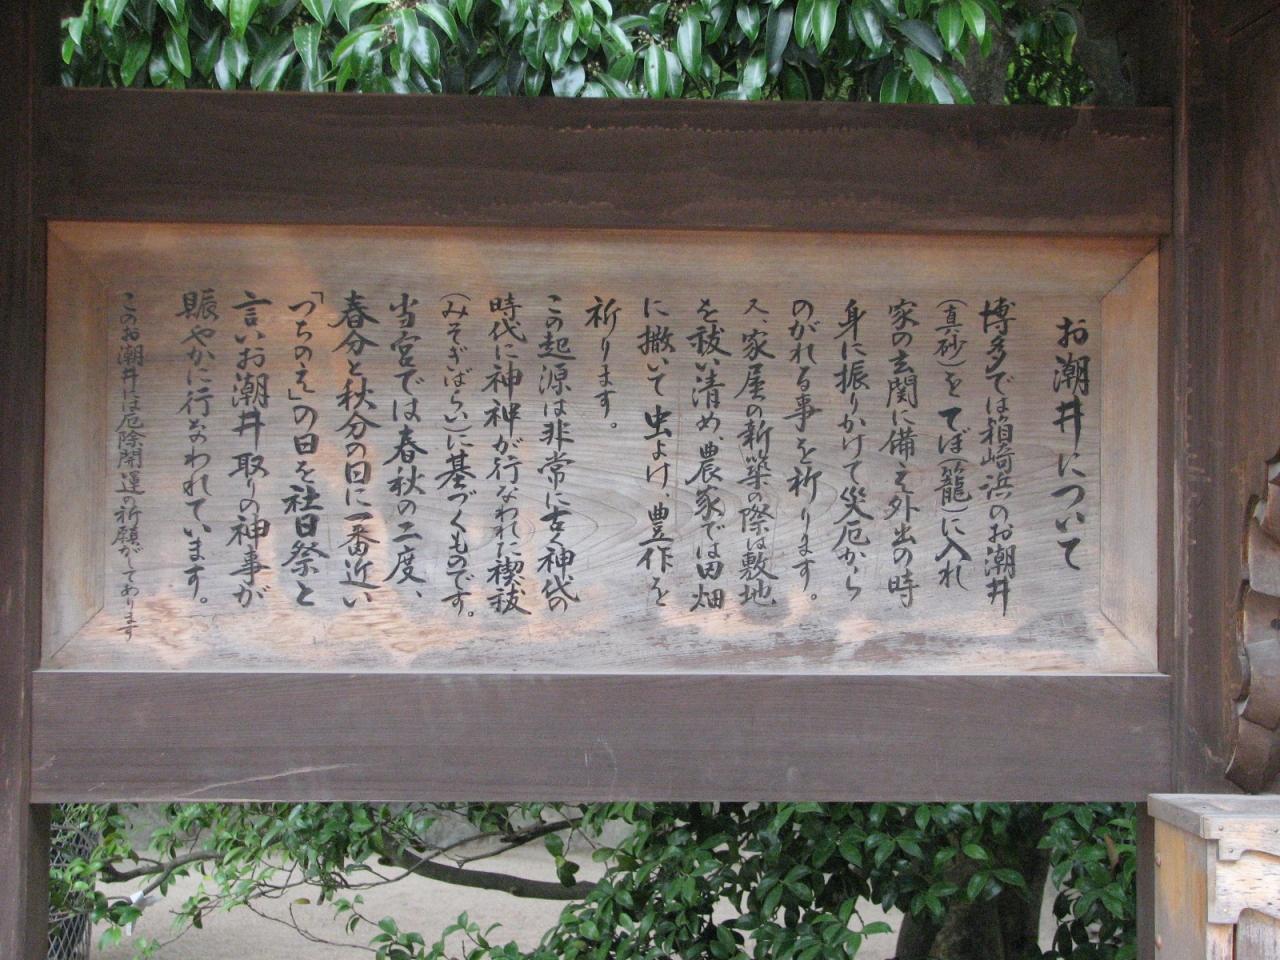 お潮井について
博多では箱崎浜のお潮井
(真砂)をてぼ(籠)に入れ
家の玄関に備え外出の時
身に振りかけて災厄から
のがれる事を祈ります。
又、家屋の新築の際は敷地
を祓い清め、農家では田畑
に撒いて虫よけ、豊作を
祈ります。
この起源は非常に古く神代の
時代に神神が行なわれた禊祓
(みそぎばらい)に基づくものです。
当宮では春秋の二度、
春分と秋分の日に一番近い
「つちのえ」の日を社日祭と
言いお潮井取りの神事が
賑やかに行なわれています。
このお潮井には厄除開運の祈願がしてあります